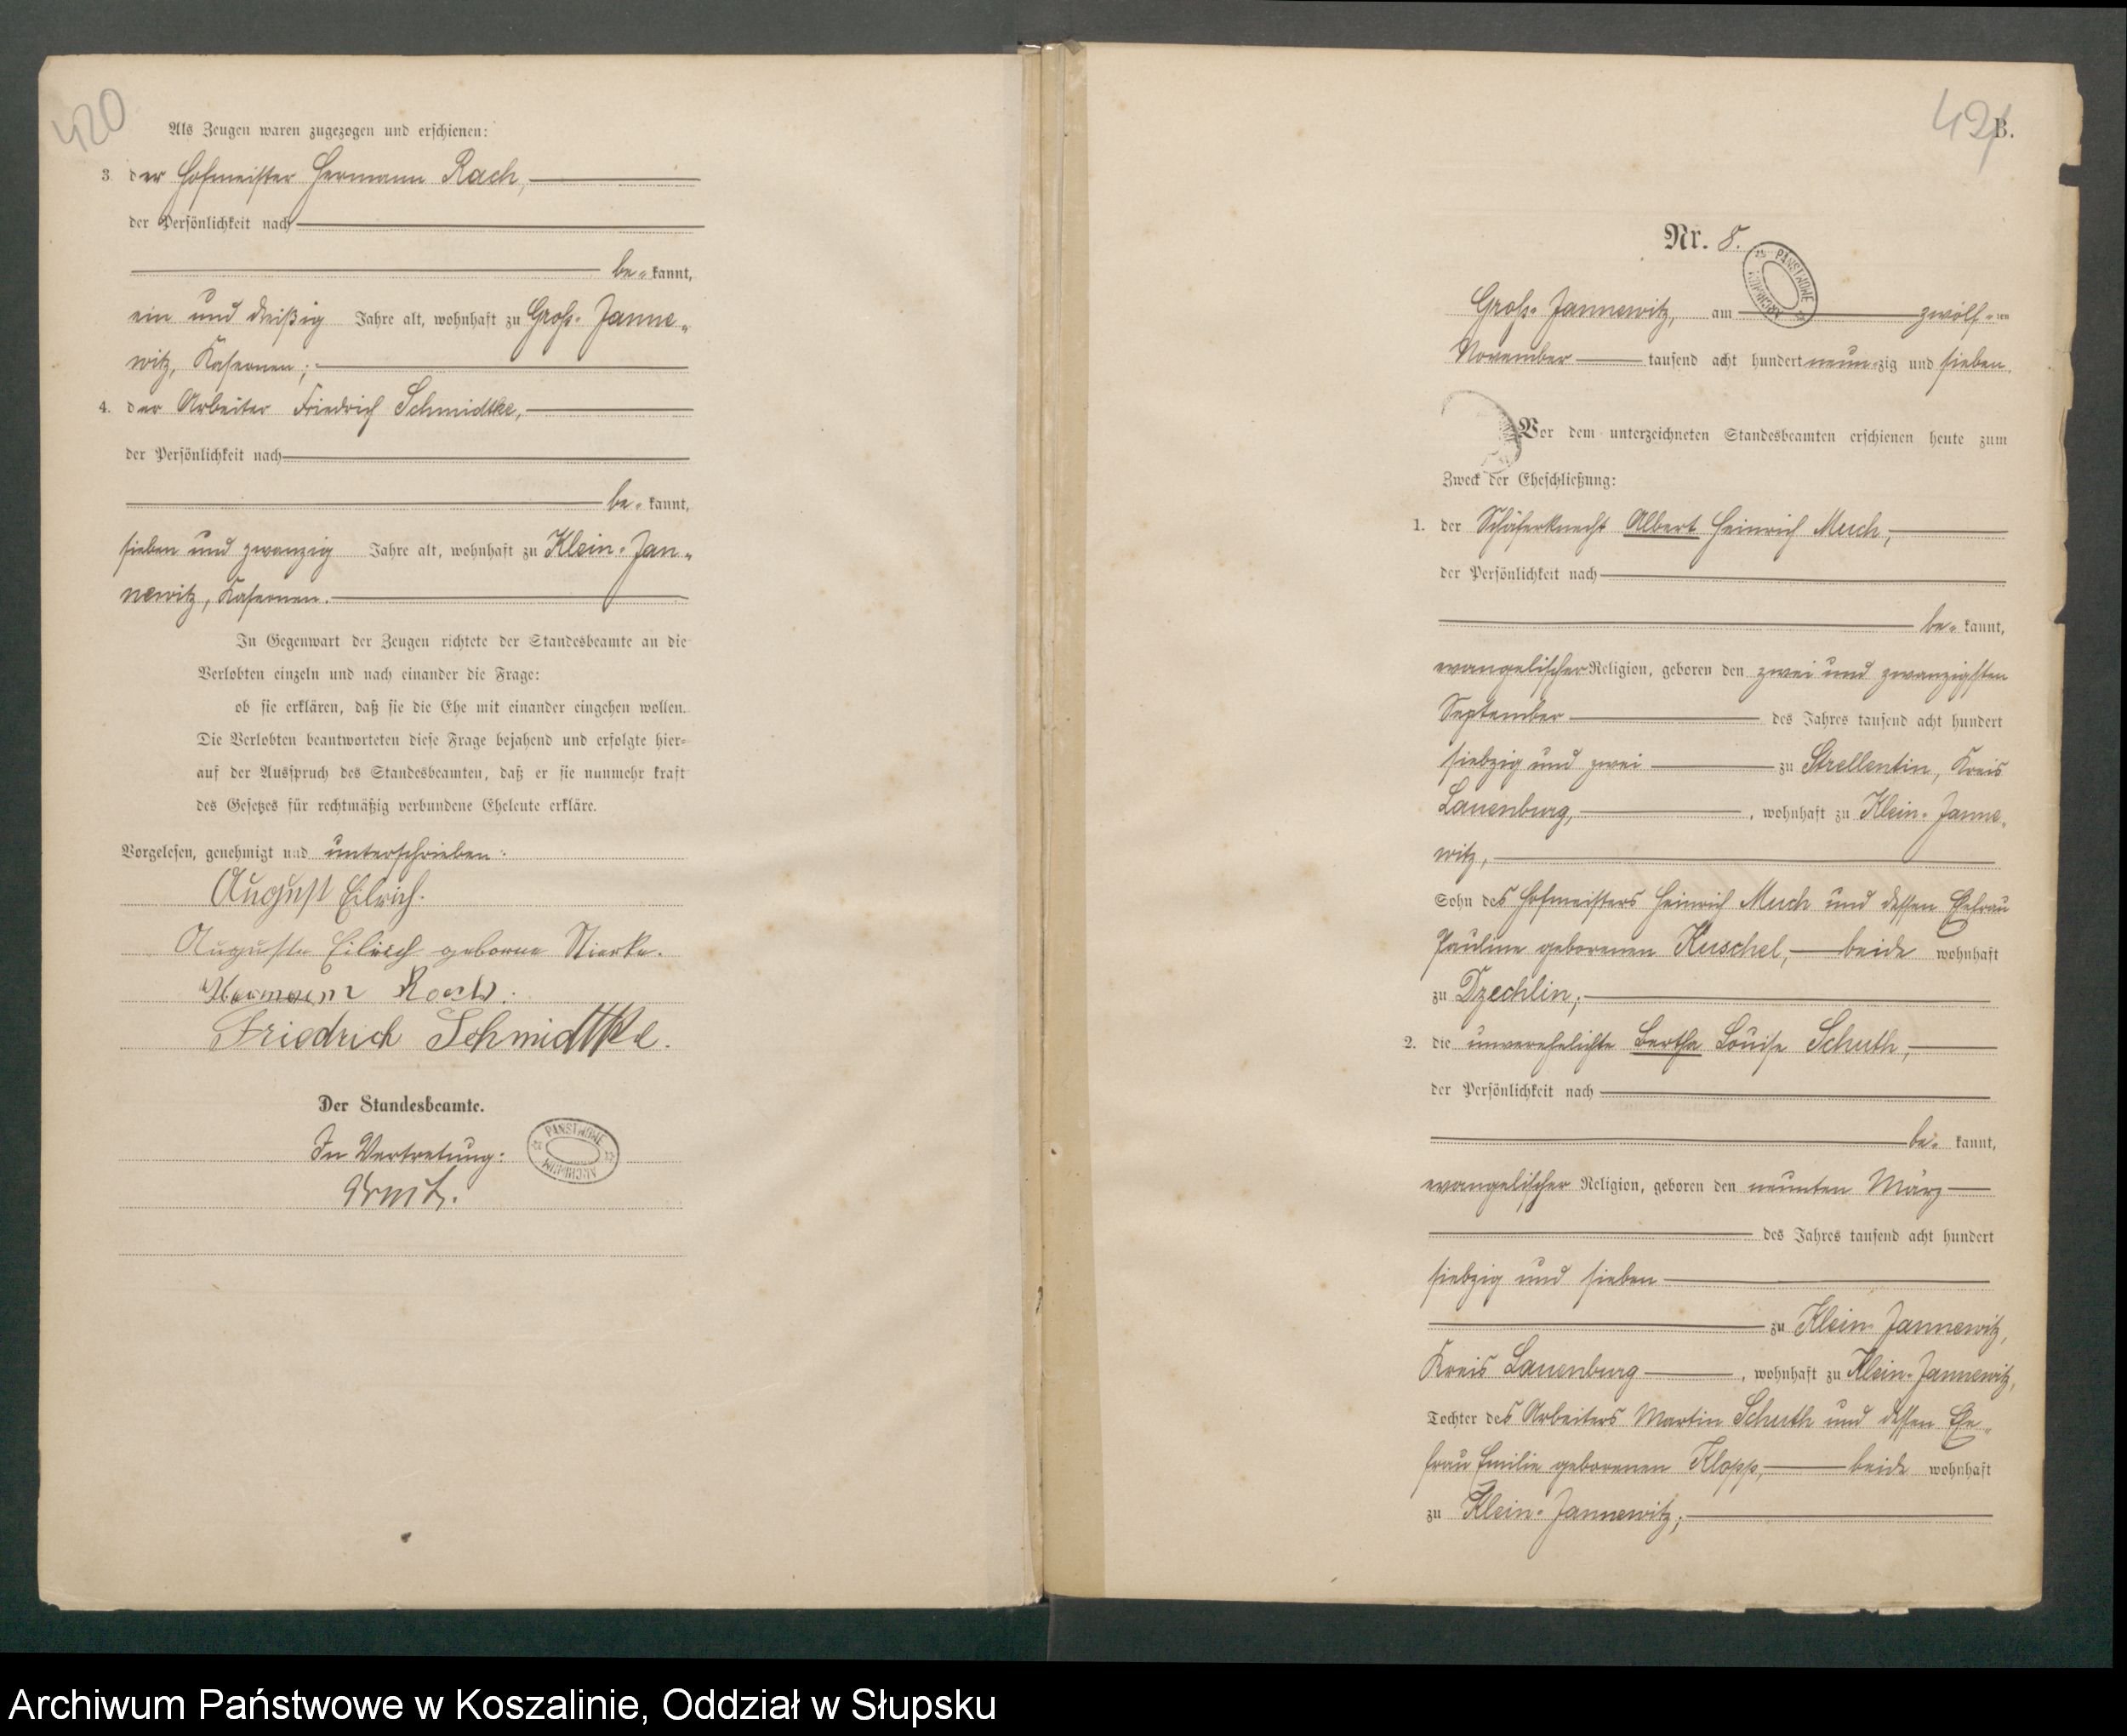 420
Als Zeugen waren zugezogen und erschienen:
3. der Hofmeister Hermann Rach,
der Persönlichkeit nach
be- kannt,
ein und dreißig Jahre alt, wohnhaft zu Groß-Janne-
witz, Kasernen;
4. der Arbeiter Friedrich Schmidtke,
der Persönlichkeit nach
be- kannt,
sieben und zwanzig Jahre alt, wohnhaft zu Klein-Jan-
newitz, Kasernen.
In Gegenwart der Zeugen richtete der Standesbeamte an die
Verlobten einzeln und nach einander die Frage:
ob sie erklären, daß sie die Ehe mit einander eingehen wollen.
Die Verlobten beantworteten diese Frage bejahend und erfolgte hier-
auf der Ausspruch des Standesbeamten, daß er sie nunmehr kraft
des Gesetzes für rechtmäßig verbundene Eheleute erkläre.
Vorgelesen, genehmigt und unterschrieben:
August Eilrich.
Auguste Eilrich geborne Stierke.
Hermann Rach.
Friedrich Schmidtke.
Der Standesbeamte.
In Vertretung:
PAŃSTWOWE ARCHIWUM
421
B.
Nr. 8.
PAŃSTWOWE ARCHIWUM
Groß-Jannewitz, am zwölf-ten
November tausend acht hundert neunzig und sieben.
Vor dem unterzeichneten Standesbeamten erschienen heute zum
Zweck der Eheschließung:
1. der Schäferknecht Albert Heinrich Much,
der Persönlichkeit nach
be- kannt,
evangelischer Religion, geboren den zwei und zwanzigsten
September des Jahres tausend acht hundert
siebzig und zwei zu Strellentin, Kreis
Lauenburg, , wohnhaft zu Klein-Janne-
witz,
Sohn des Hofmeisters Heinrich Much und dessen Ehefrau
Pauline geborenen Kuschel, beide wohnhaft
zu Dzechlin;
2. die unverehelichte Bertha Louise Schuth,
der Persönlichkeit nach
be- kannt,
evangelischer Religion, geboren den neunten März
des Jahres tausend acht hundert
siebzig und sieben
zu Klein-Jannewitz,
Kreis Lauenburg , wohnhaft zu Klein-Jannewitz,
Tochter des Arbeiters Martin Schuth und dessen Ehe-
frau Emilie geborenen Klopp, beide wohnhaft
zu Klein-Jannewitz;
Archiwum Państwowe w Koszalinie, Oddział w Słupsku